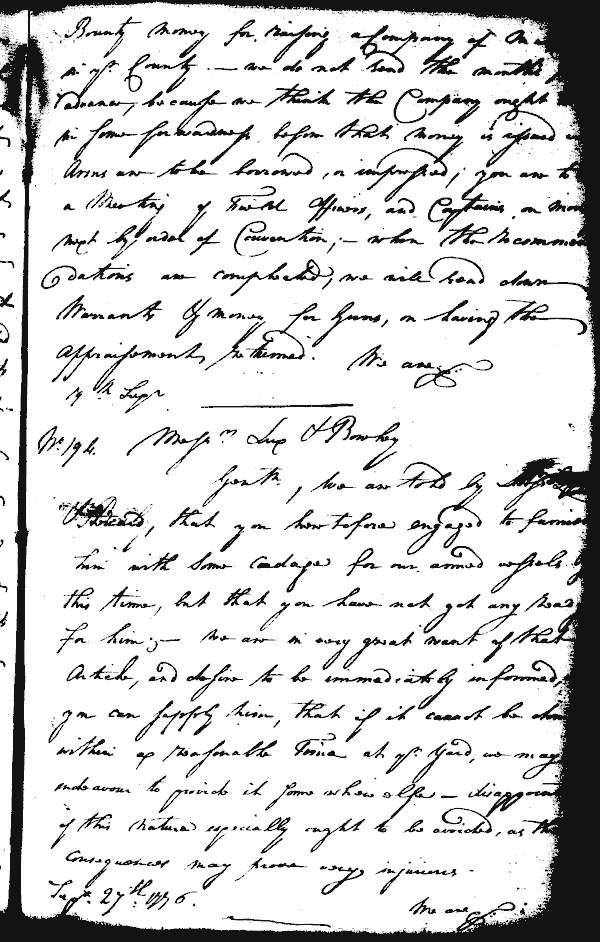 Bounty money for raising a Company of
in yr. County. — we do not send the months
advance, because we think the Company ought
in some forwardness before that money is issued
Arms are to be borrowed, or impressed; you are to
a Meeting of Field Officers, and Captains, on
next by order of Convention; — when the recommen
dations are compleated, we will send down
Warrants & money for Guns, on having the
Appraisement returned. We are &c.
Sepr
No. 194. Messrs Lux & Bowley
Gent., We are told by
that you heretofore engaged to furnish
him with some cordage for our armed vessels
this time, but that you have not got any ready
for him; — We are in very great want of that
Article, and desire to be immediately informed,
you can supply him, that if it cannot be done
within a reasonable Time at yr. Yard, we may
endeavour to provide it some where else —
of this nature especially ought to be avoided, as the
Consequences may prove very injurious.
Sepr. 27th 1776.
We are &c.